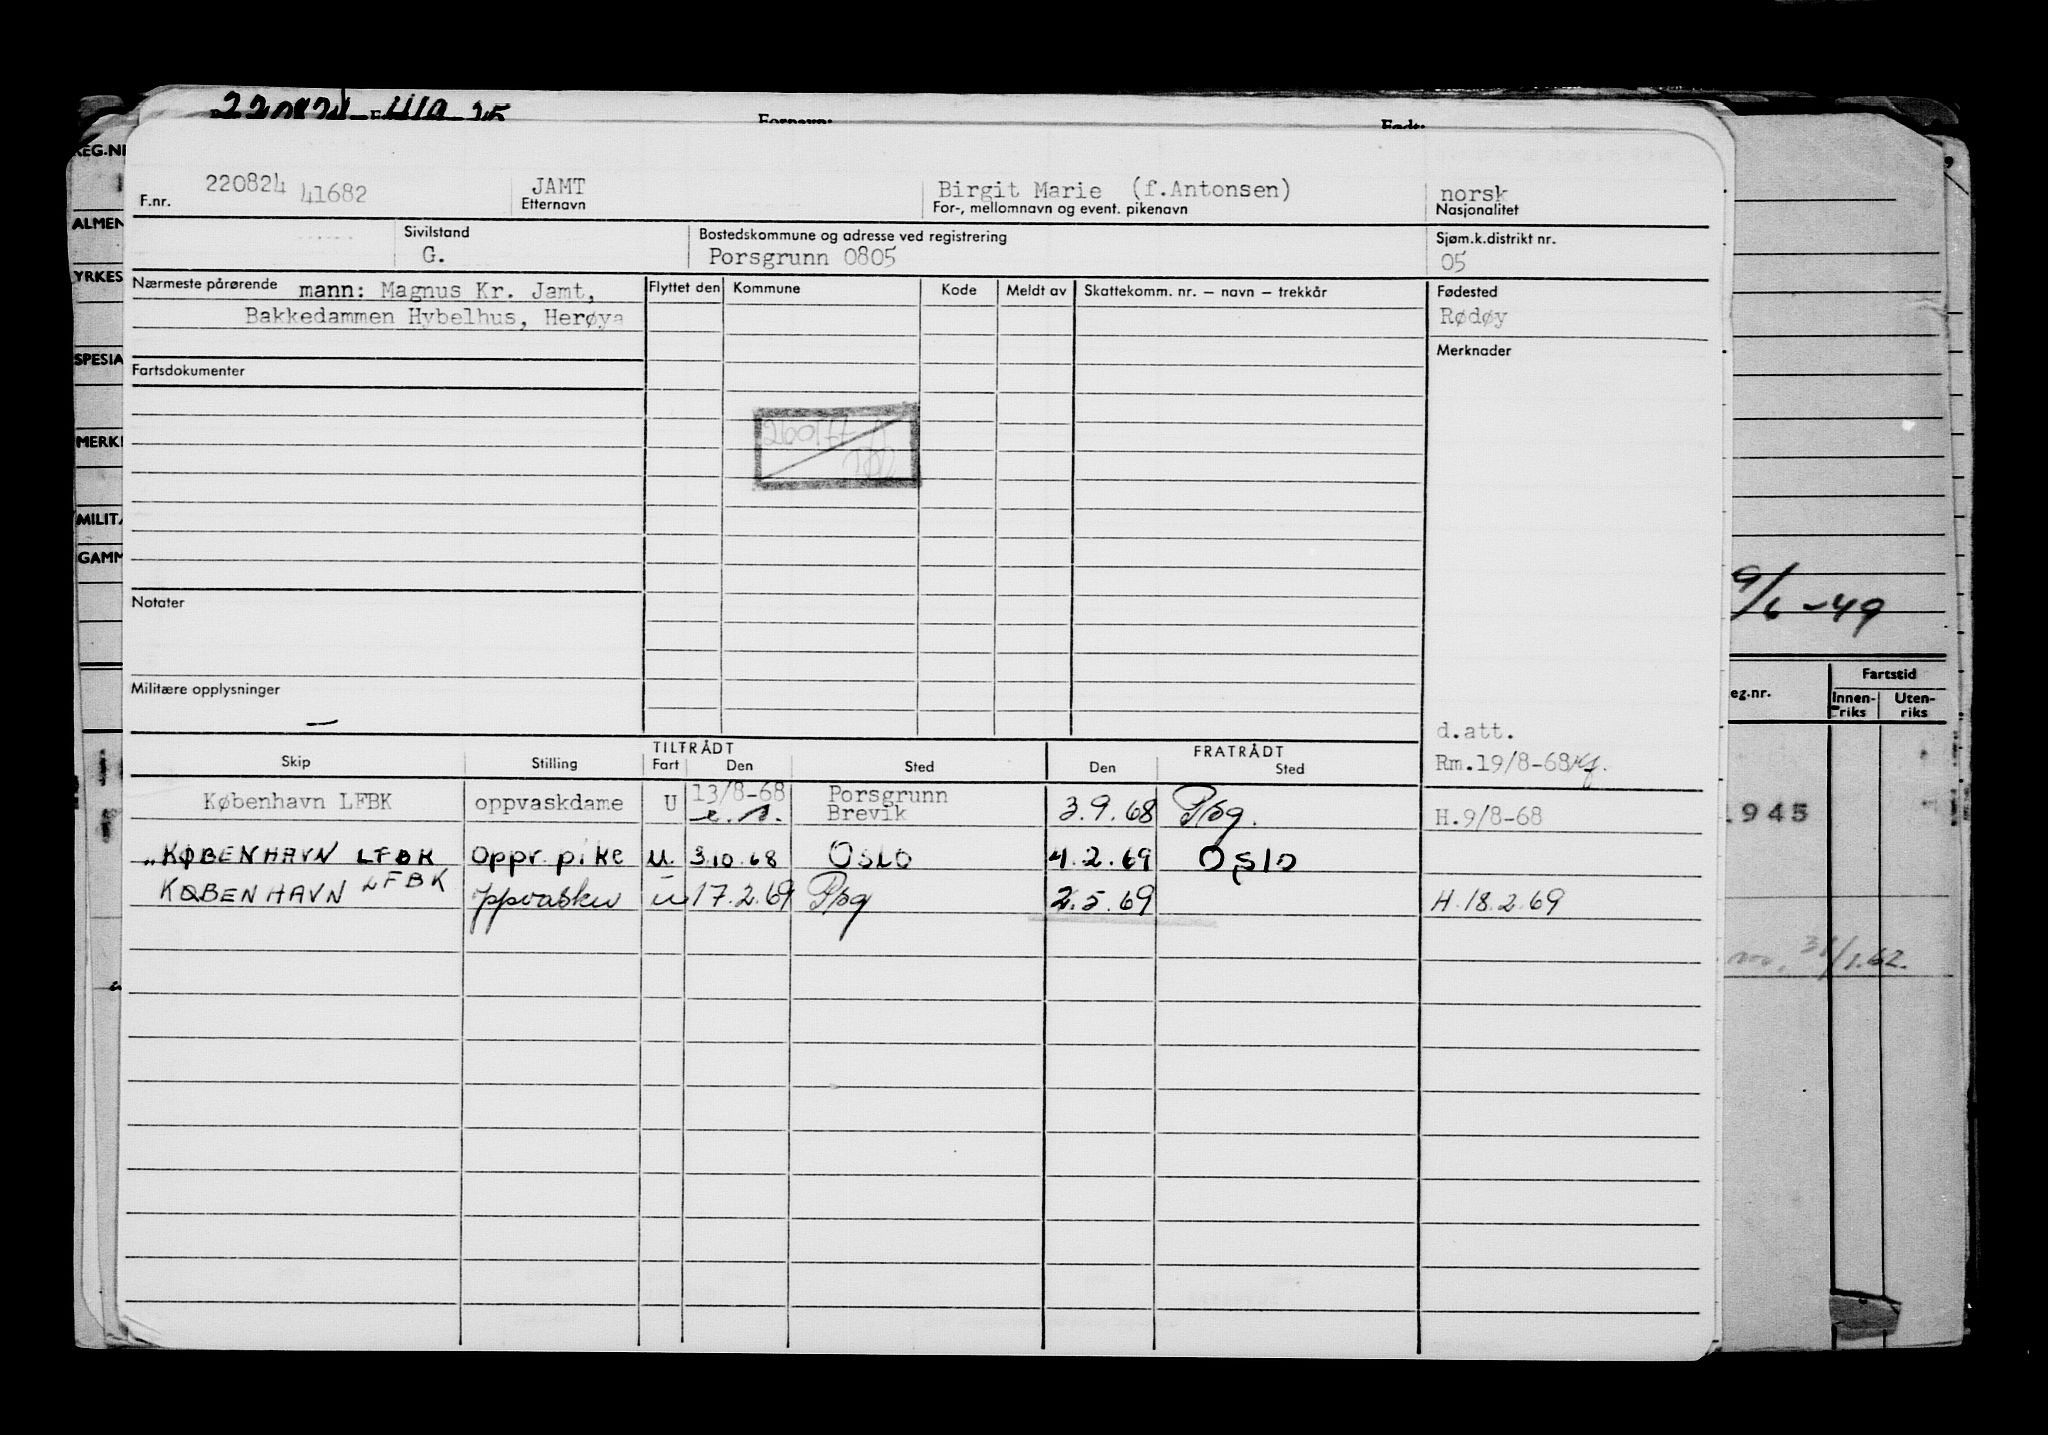 220824
Fornavn:
REG.NR
220824 41682 JAMT Birgit Marie (f.Antonsen) norsk
F.nr. Etternavn For-, mellomnavn og event. pikenavn Nasjonalitet
ALMEN
Sivilstand Bostedskommune og adresse ved registrering Sjøm.k.distrikt nr.
G. Porsgrunn 0805 05
YRKES
Nærmeste pårørende mann: Magnus Kr. Jamt, Flyttet den Kommune Kode Meldt av Skattekomm. nr. — navn — trekkår Fødested
Bakkedammen Hybelhus, Herøya Rødøy
SPESIA Merknader
Fartsdokumenter
MERK
MILIT
GAMM
Notater 9/6 -49
Fartstid
Militære opplysninger eg.nr. Innen-riks Uten-riks
—
d.att.
TILTRÅDT FRATRÅDT
Skip Stilling Fart Den Sted Den Sted Rm.19/8-68
København LFBK oppvaskdame U 13/8-68 Porsgrunn
e.s. Brevik 3.9.68 Psg. H.9/8-68
1945
„ KØBENHAVN LFBK Oppr. pike u. 3.10.68 OSLO 4.2.69 Oslo
KØBENHAVN LFBK Oppvasker u 17.2.69 Psg 2.5.69 H.18.2.69
31/1.62.